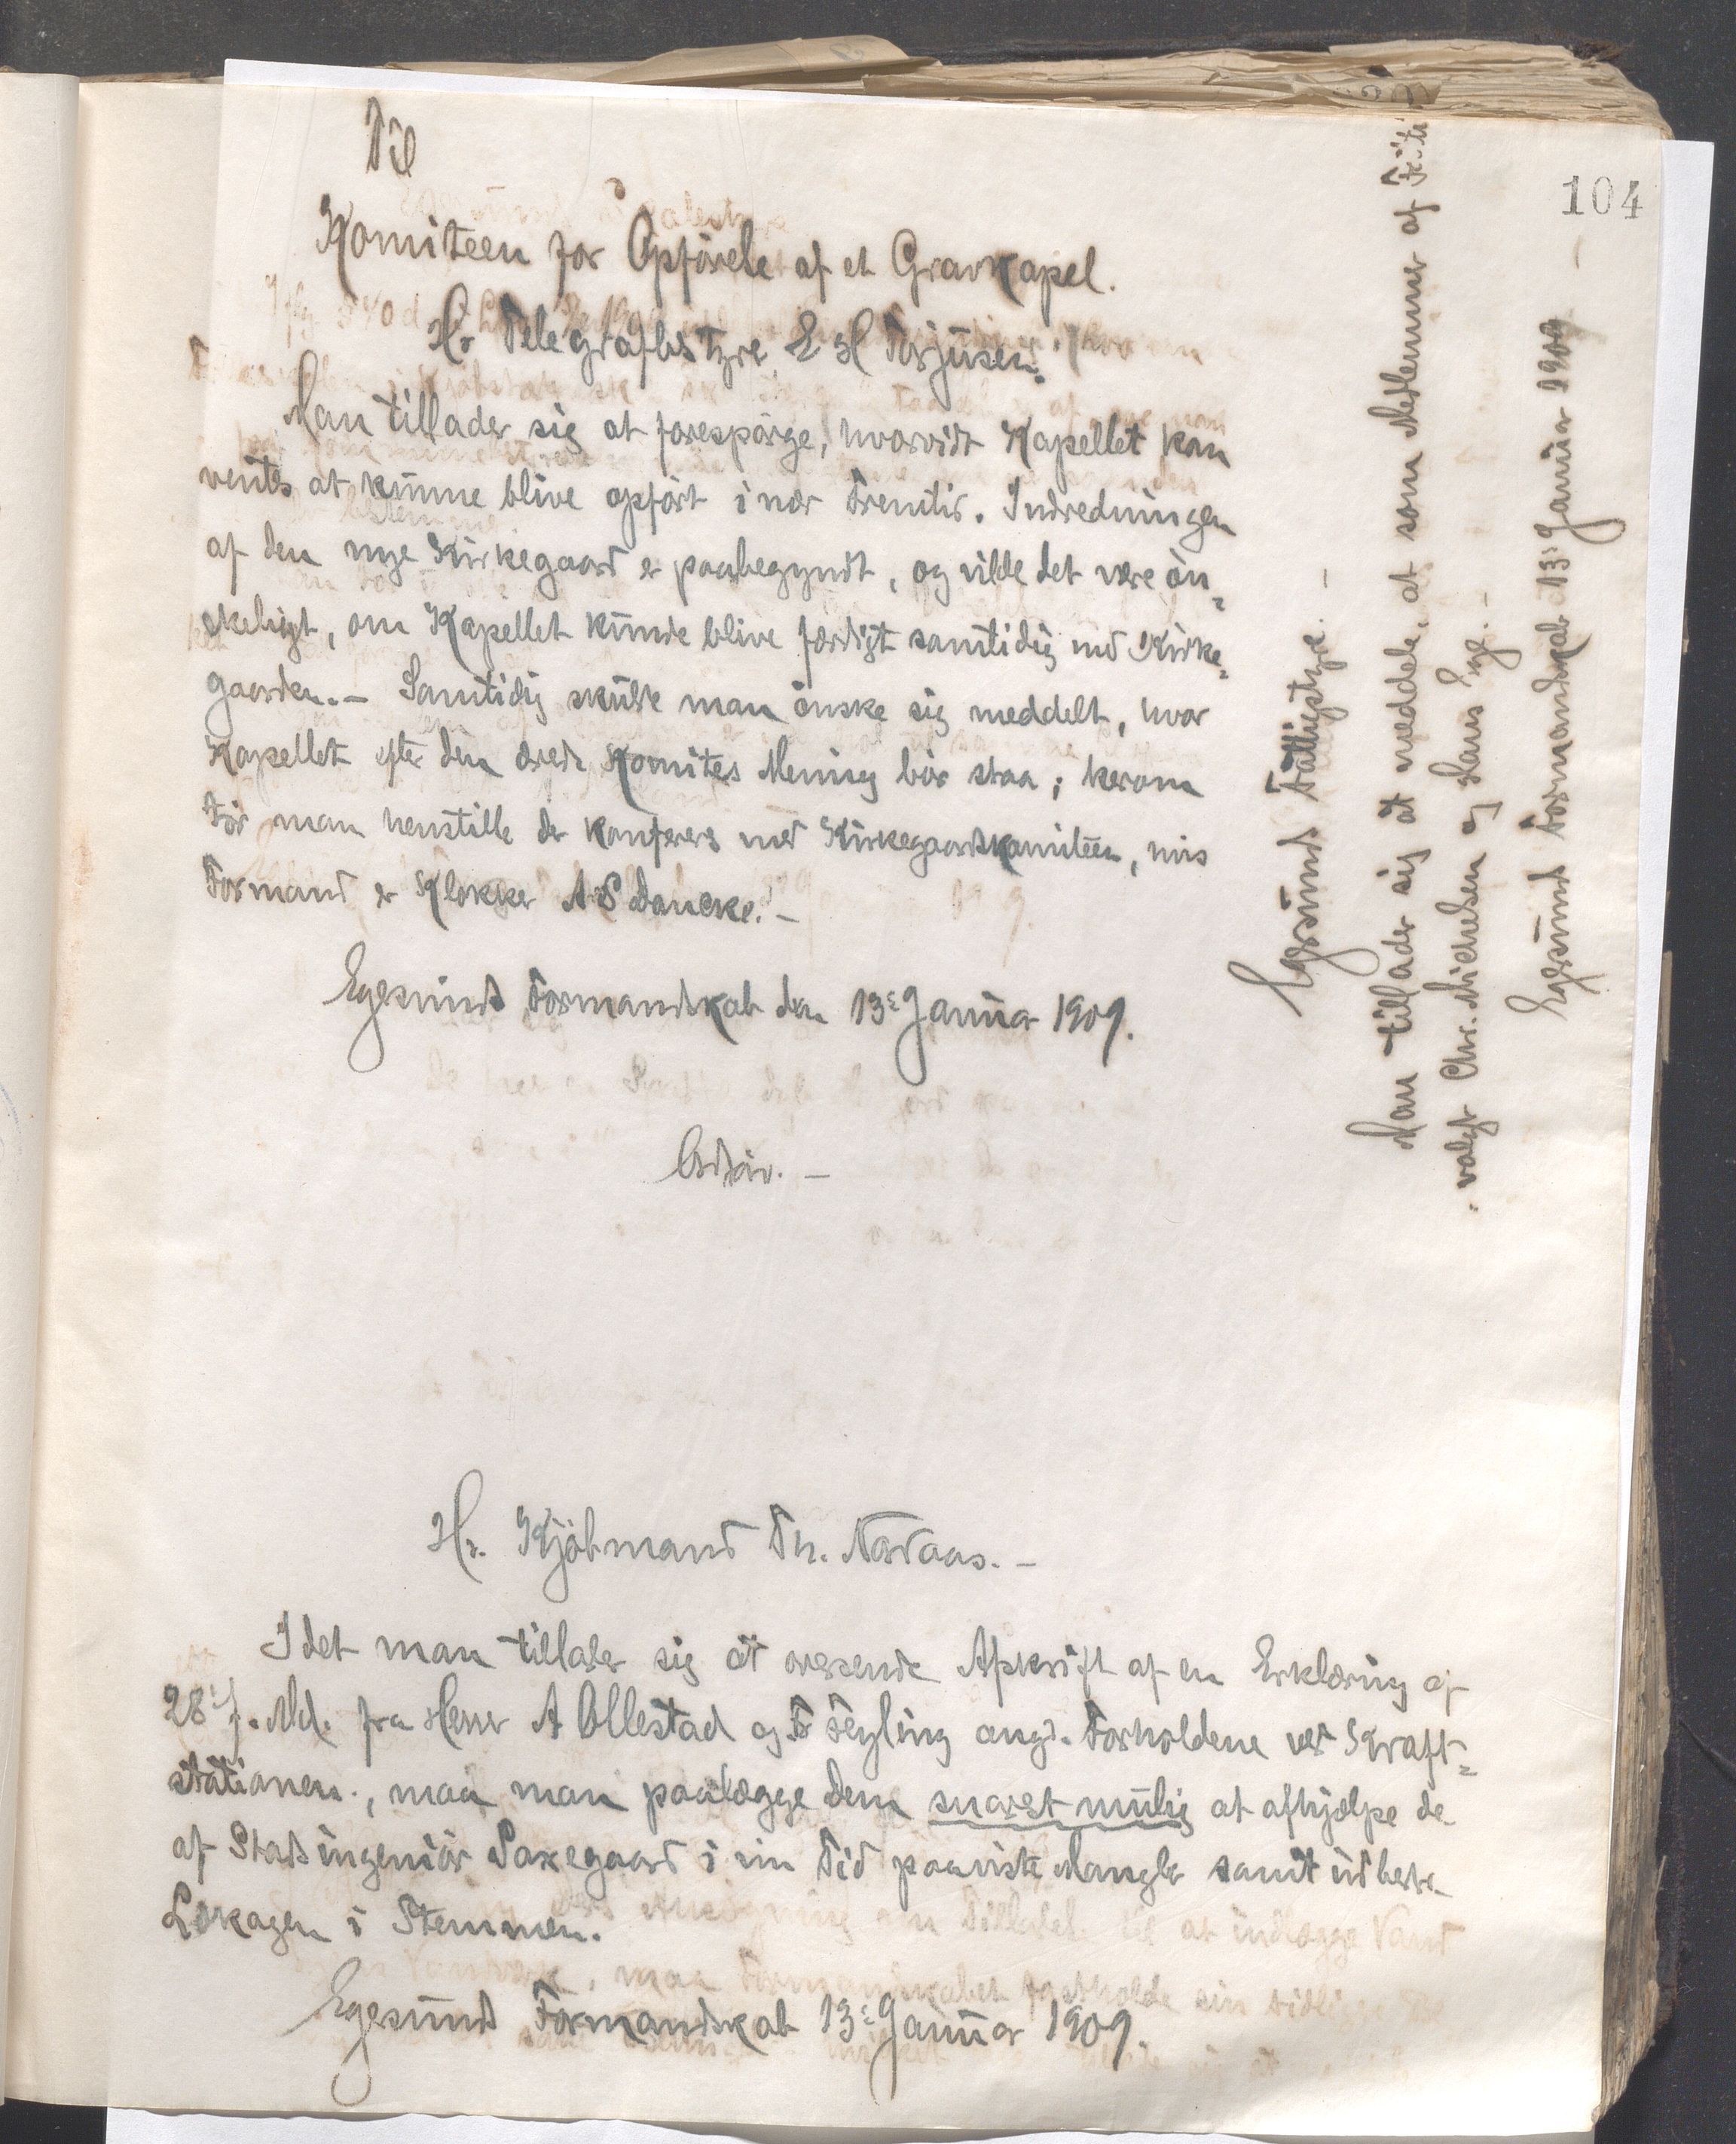 104
Til
Komiteen for Opförele af et Gravkapel.
Hr Telegrafbestyre E H Terjusen.
Man tillader sig at forespörge, hvorvidt Kapellet kan
ventes at kunne blive opfört i nær Fremtid. Indredningen
af den nye Kirkegaard er paabegyndt, og vilde det være ön-
skeligt, om Kapellet kunde blive færdigt samtidig med Kirke-
gaarden. – Samtidig skulde man önske sig meddelt, hvor
Kapellet efter den ærede Komites Mening bör staa; herom
tör man henstille der konferers med Kirkegaardskomiteen, hvis
Formand er Klokker A S Dancke. –
Egersund Formandskab den 13de Januar 1909.
Ordför. –
Hr. Kjöbmand Th. Aavaas. –
I det man tillader sig at oversende Afskrift af en Erklæring af
28' f. Md. fra Herrer A Ollestad og F Feyling angd. Forholdene ved Kraft-
stationen, maa man paalægge Dem snarest mulig at afhjælpe de
af Stadsingeniör Saxegaard i sin Tid paaviste Mangler samt udbedre
Lækagen i Stemmen.
Egersund Formandskab 13de Januar 1909.
Egersund Fattigstyre. –
Man tillader sig at meddele, at som Medlemmer af
valgt Chr. Michelsen og Hans Lye. –
Egersund Formandskab 13de Januar 1909 –